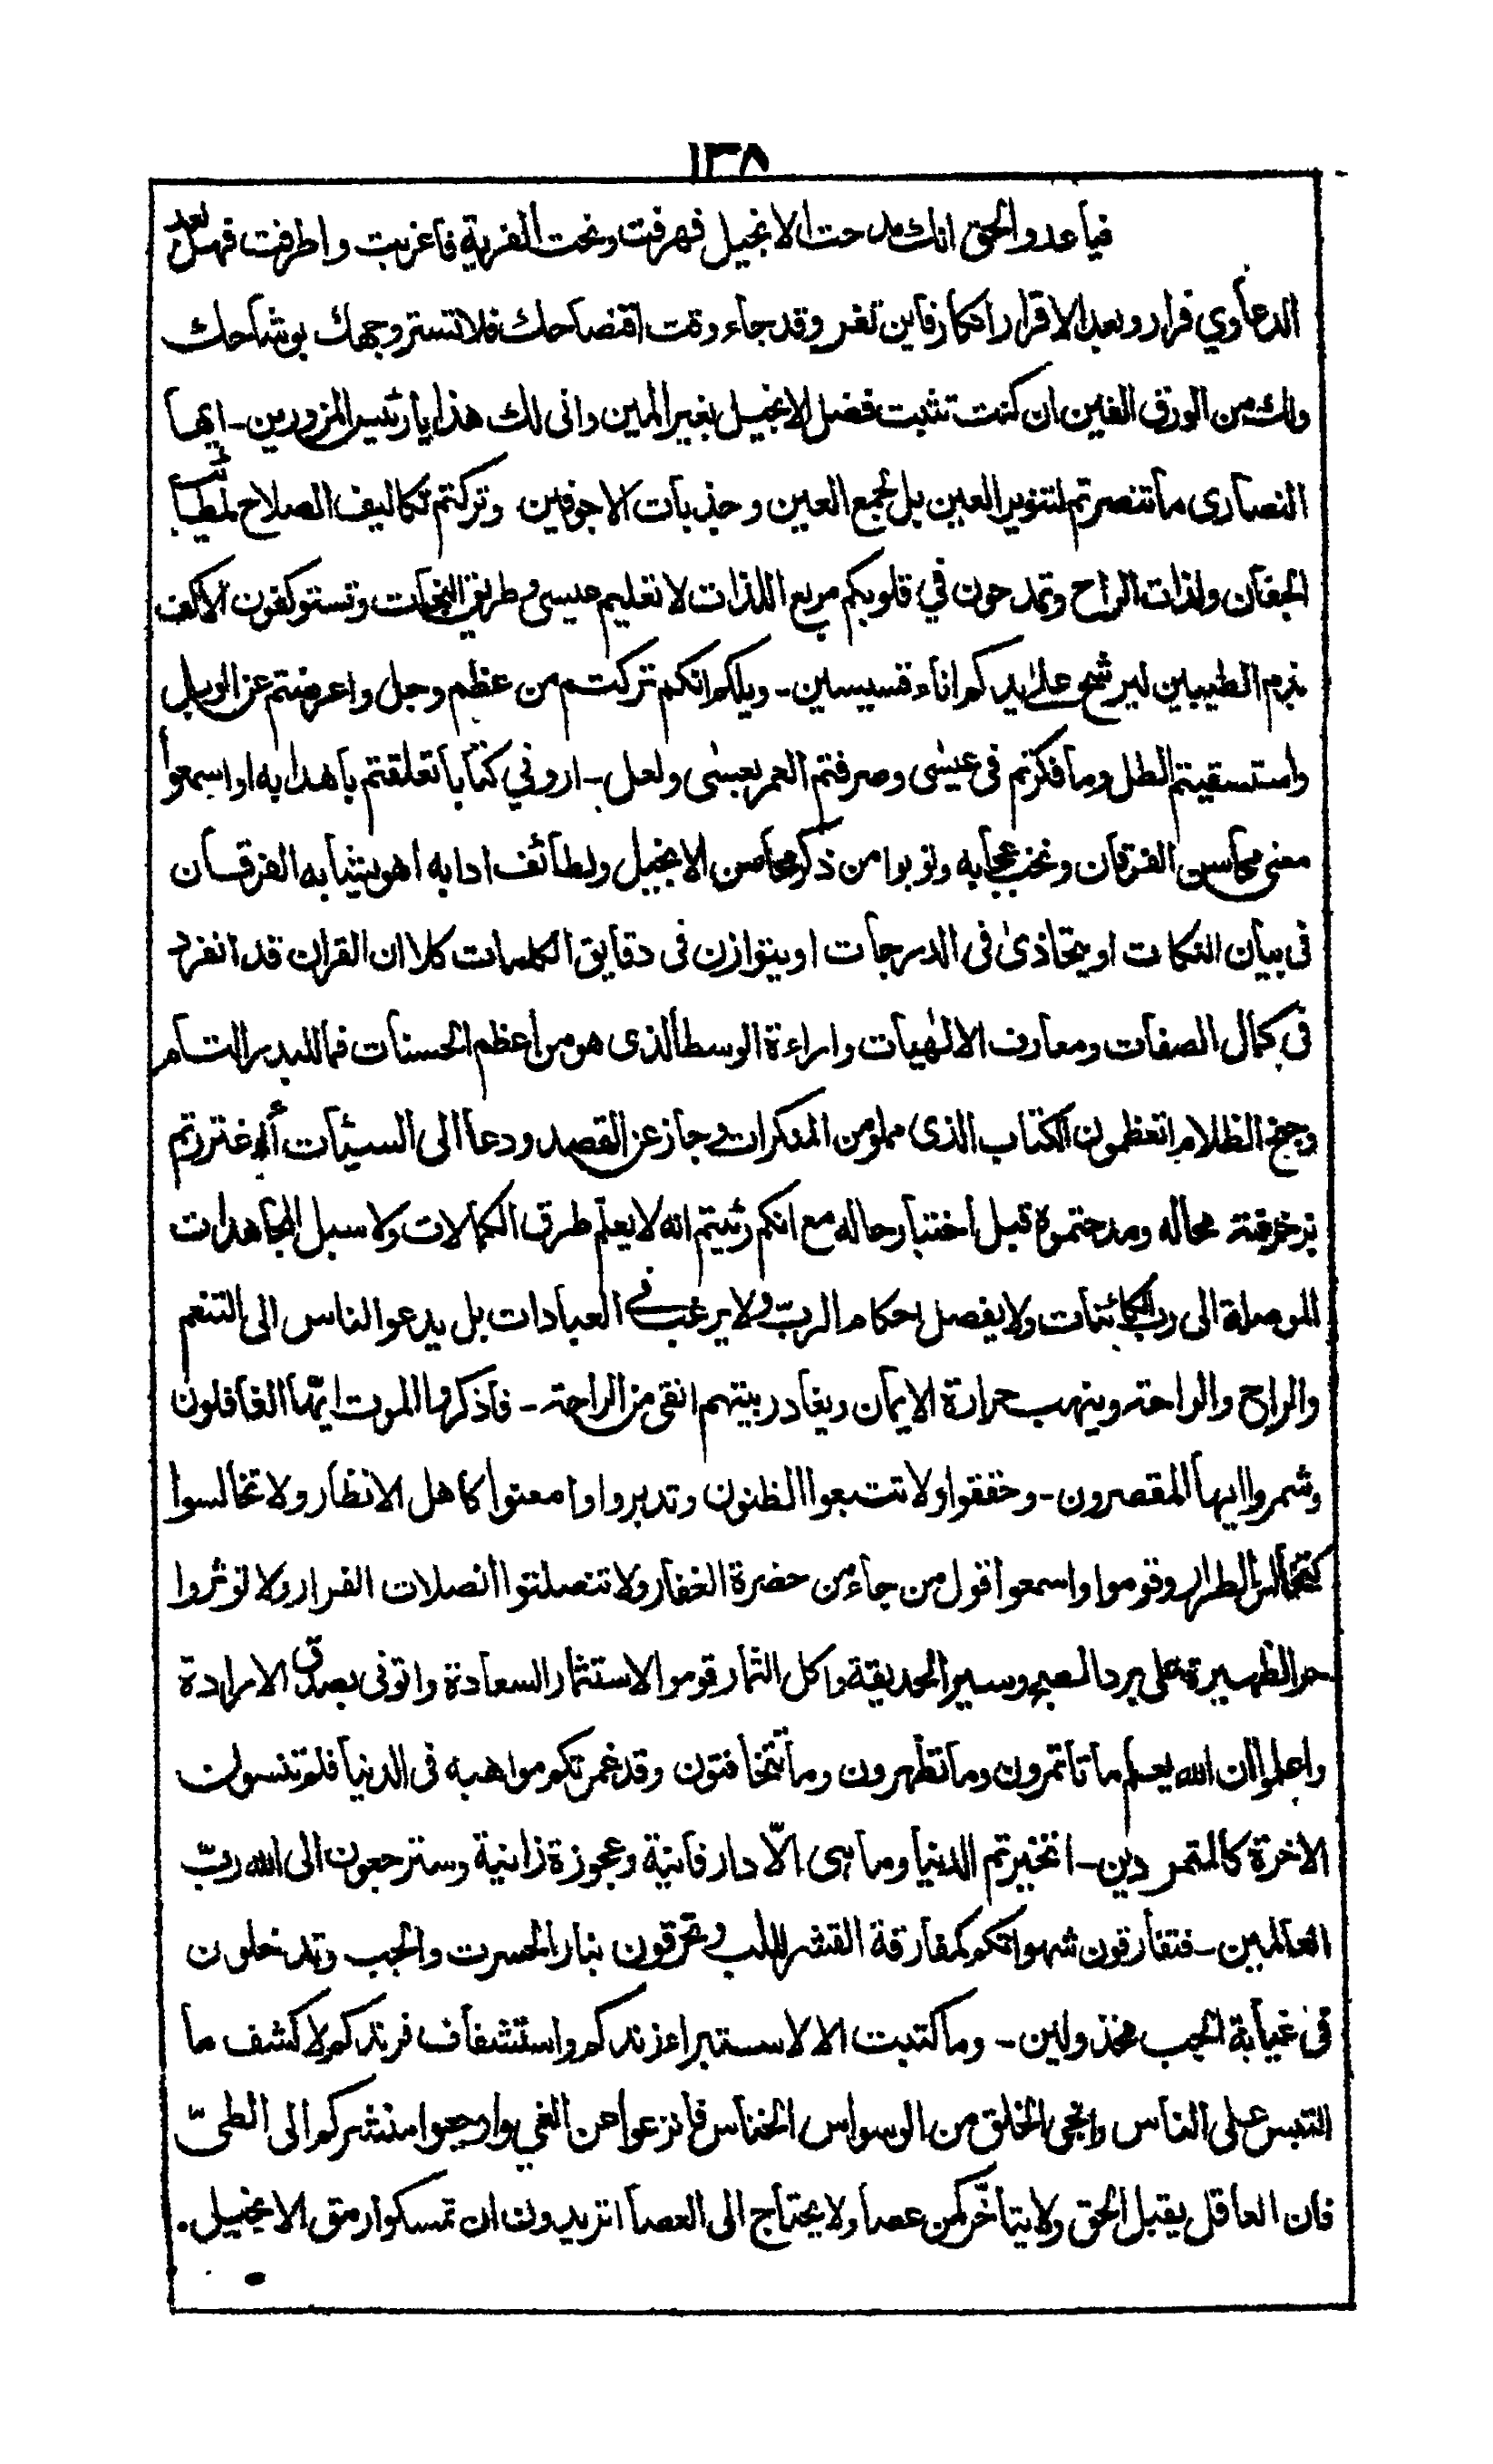 ١٣٨
فيا عدو الحق انك مدحت الانجيل فهرفت ونحت الفرية فاغربت واطرفت فهل بعد
الدعاوي فرار وبعد الاقرار انكار فاين تفر وقد جاء وقت افتضاحك فلا تستر وجهك بوشاحك
ولك من الورق الفين ان كنت تثبت فضل الانجيل بغير المين وانى لك هذا يا رئيس المزورين - ايها
النصارى ما تنصرتم لتنوير العين بل لجمع العين وجذبات الاجوفين وتركتم تكاليف الصلاح لمطيبأت
الجفان ولذات الراح وتمدحون في قلوبكم مريع اللذات لا تعليم عيسى وطريق النجات وتستوكفون الاكف
بذم الطيبين ليرشح على يدكم اناء قسيسين - ويلكم انكم تركتم من عظم وجل واعرضتم عن الوبل
واستسقيتم الطل وما فكرتم فى عيسٰى وصرفتم العمر بعسٰى ولعل - اروني كتابا تعلقتم باهدابه او اسمعوا
معنى محاسن الفرقان ونخب عجابه وتوبوا من ذكر محاسن الانجيل ولطائف ادابه اهو يشابه الفرقان
فى بيان النكات او يتحاذىٰ فى الدرجات او يتوازن فى دقايق الكلمات كلا ان القران قد انفرد
فى كمال الصفات ومعارف الالٰهيات واراءة الوسط الذى هو من اعظم الحسنات فما للبدر التام
وجنح الظلام اتعظمون الكتاب الذى مملو من المنكرات وجاز عن القصد ودعا الى السيئات أاغتررتم
بزخرفة محاله ومدحتموه قبل اختبار حاله مع انكم رئيتم انه لا يعلم طرق الكمالات ولا سبل المجاهدات
الموصلة الى رب الكائنات ولا يفصل احكام الربّ ولا يرغب فى العبادات بل يدعو الناس الى التنعم
والراح والراحة وينهب حرارة الايمان ويغادر بيتهم انقى من الراحة - فاذكروا الموت ايّها الغافلون
وشمروا ايها المقصرون - وحققوا ولا تتبعوا الظنون وتدبروا وامعنوا كاهل الانظار ولا تخالسوا
كتخالس الطرار وقوموا واسمعوا قول من جاء من حضرة الغفار ولا تنصلتوا انصلات الفرار ولا توثروا
حر الظهيرة على برد السحر وسير الحديقة واكل الثمار قوموا لاستثمار السعادة واتونى بصدق الارادة
واعلموا ان الله يعلم ما تأتمرون وما تظهرون وما تتخافتون وقد غمرتكم مواهبه فى الدنيا فلم تنسون
الاخرة كالمتمردين - اتخيرتم الدنيا وما هى الّا دار فانية وعجوزة زانية وسترجعون الى الله ربّ
العالمين - فتفارقون شهواتكم كمفارقة القشر للب وتحرقون بنار الحسرت والجب وتدخلون
فى غيابة الجب مخذولين - وما كتبت الا لاستبراء زندكم واستشفاف فرندكم لاكشف ما
التبس على الناس وانجى الخلق من الوسواس الخناس فانزعوا عن الغي وارجعوا منشركم الى الطىّ
فان العاقل يقبل الحق ولا يتأخّر كمن عصا ولا يحتاج الى العصا اتريدون ان تمسكوا رمق الانجيل.